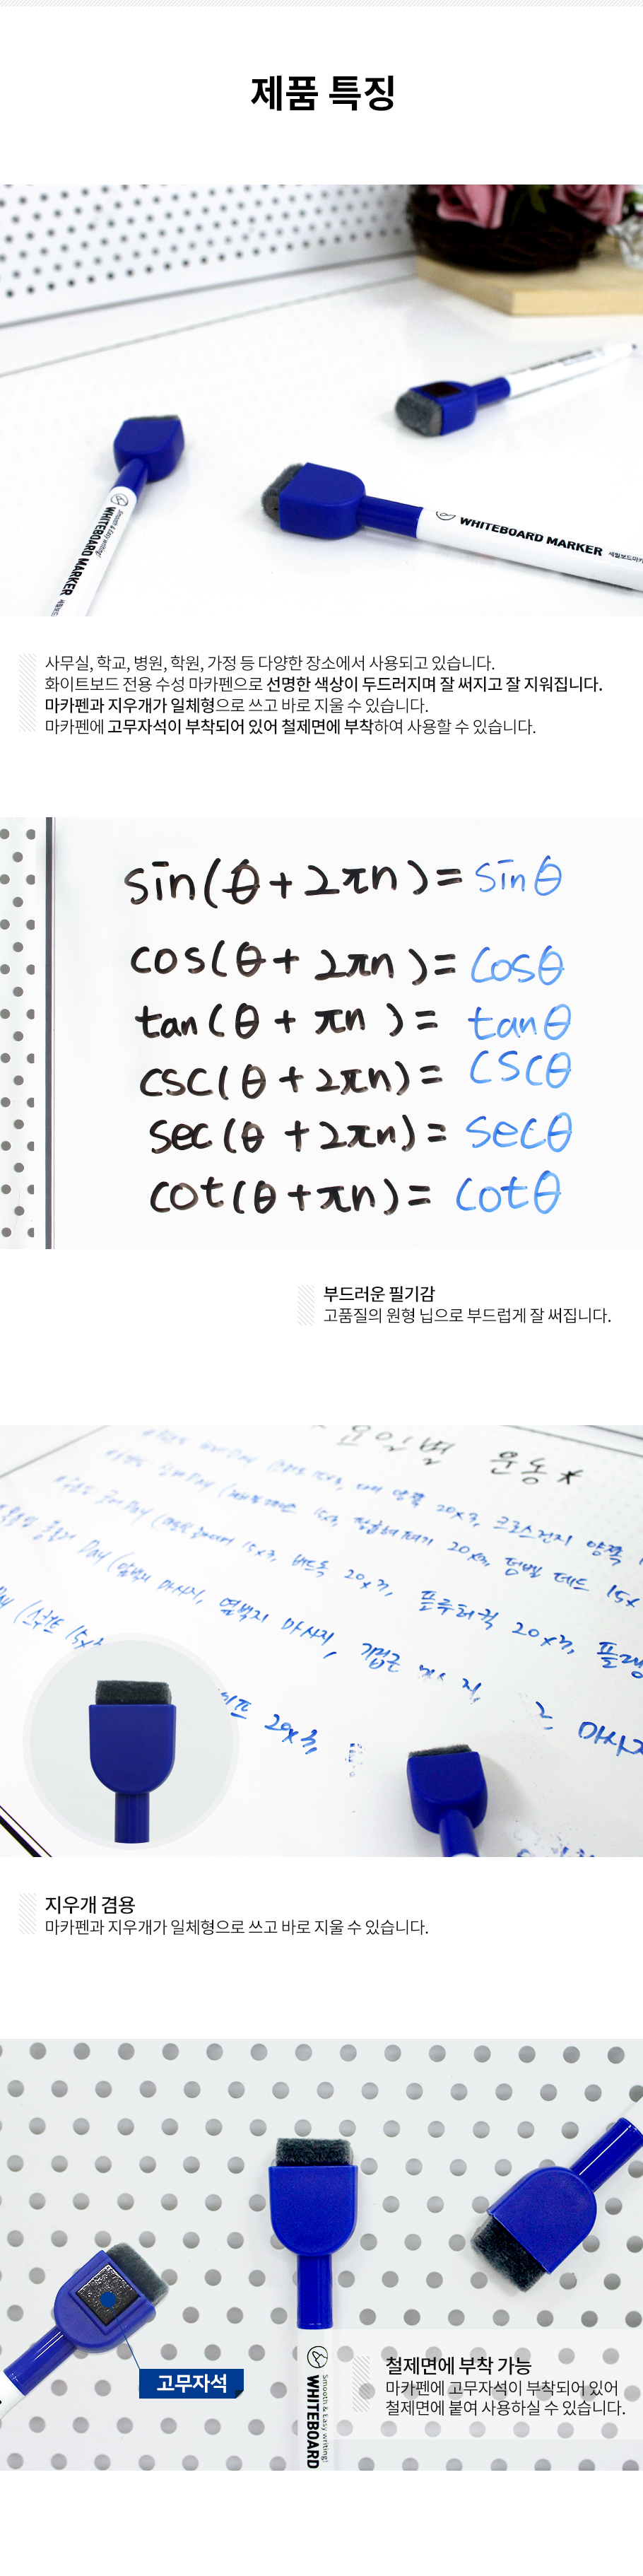 제품 특징
WHITEBOARD MARKER
Smooth & Easy writing!
WHITEBOARD MARKER
사무실, 학교, 병원, 학원, 가정 등 다양한 장소에서 사용되고 있습니다.
화이트보드 전용 수성 마카펜으로 선명한 색상이 두드러지며 잘 써지고 잘 지워집니다.
마카펜과 지우개가 일체형으로 쓰고 바로 지울 수 있습니다.
마카펜에 고무자석이 부착되어 있어 철제면에 부착하여 사용할 수 있습니다.
sin(θ+2πn)=sinθ
cos(θ+2πn)=cosθ
tan(θ+πn)=tanθ
csc(θ+2πn)=cscθ
sec(θ+2πn)=secθ
cot(θ+πn)=cotθ
부드러운 필기감
고품질의 원형 닙으로 부드럽게 잘 써집니다.
요일별 운동*
20x3, 크로스런지 양쪽
15x3, 20x3, 덤벨 데드 15x
Day 15x3, 버드독 20x3, 플루터킥 20x3, 플랭
Day 마사지, 옆벅지 마사지,
마사지
15x
20x3,
지우개 겸용
마카펜과 지우개가 일체형으로 쓰고 바로 지울 수 있습니다.
고무자석
Smooth & Easy writing!
WHITEBOARD
철제면에 부착 가능
마카펜에 고무자석이 부착되어 있어
철제면에 붙여 사용하실 수 있습니다.